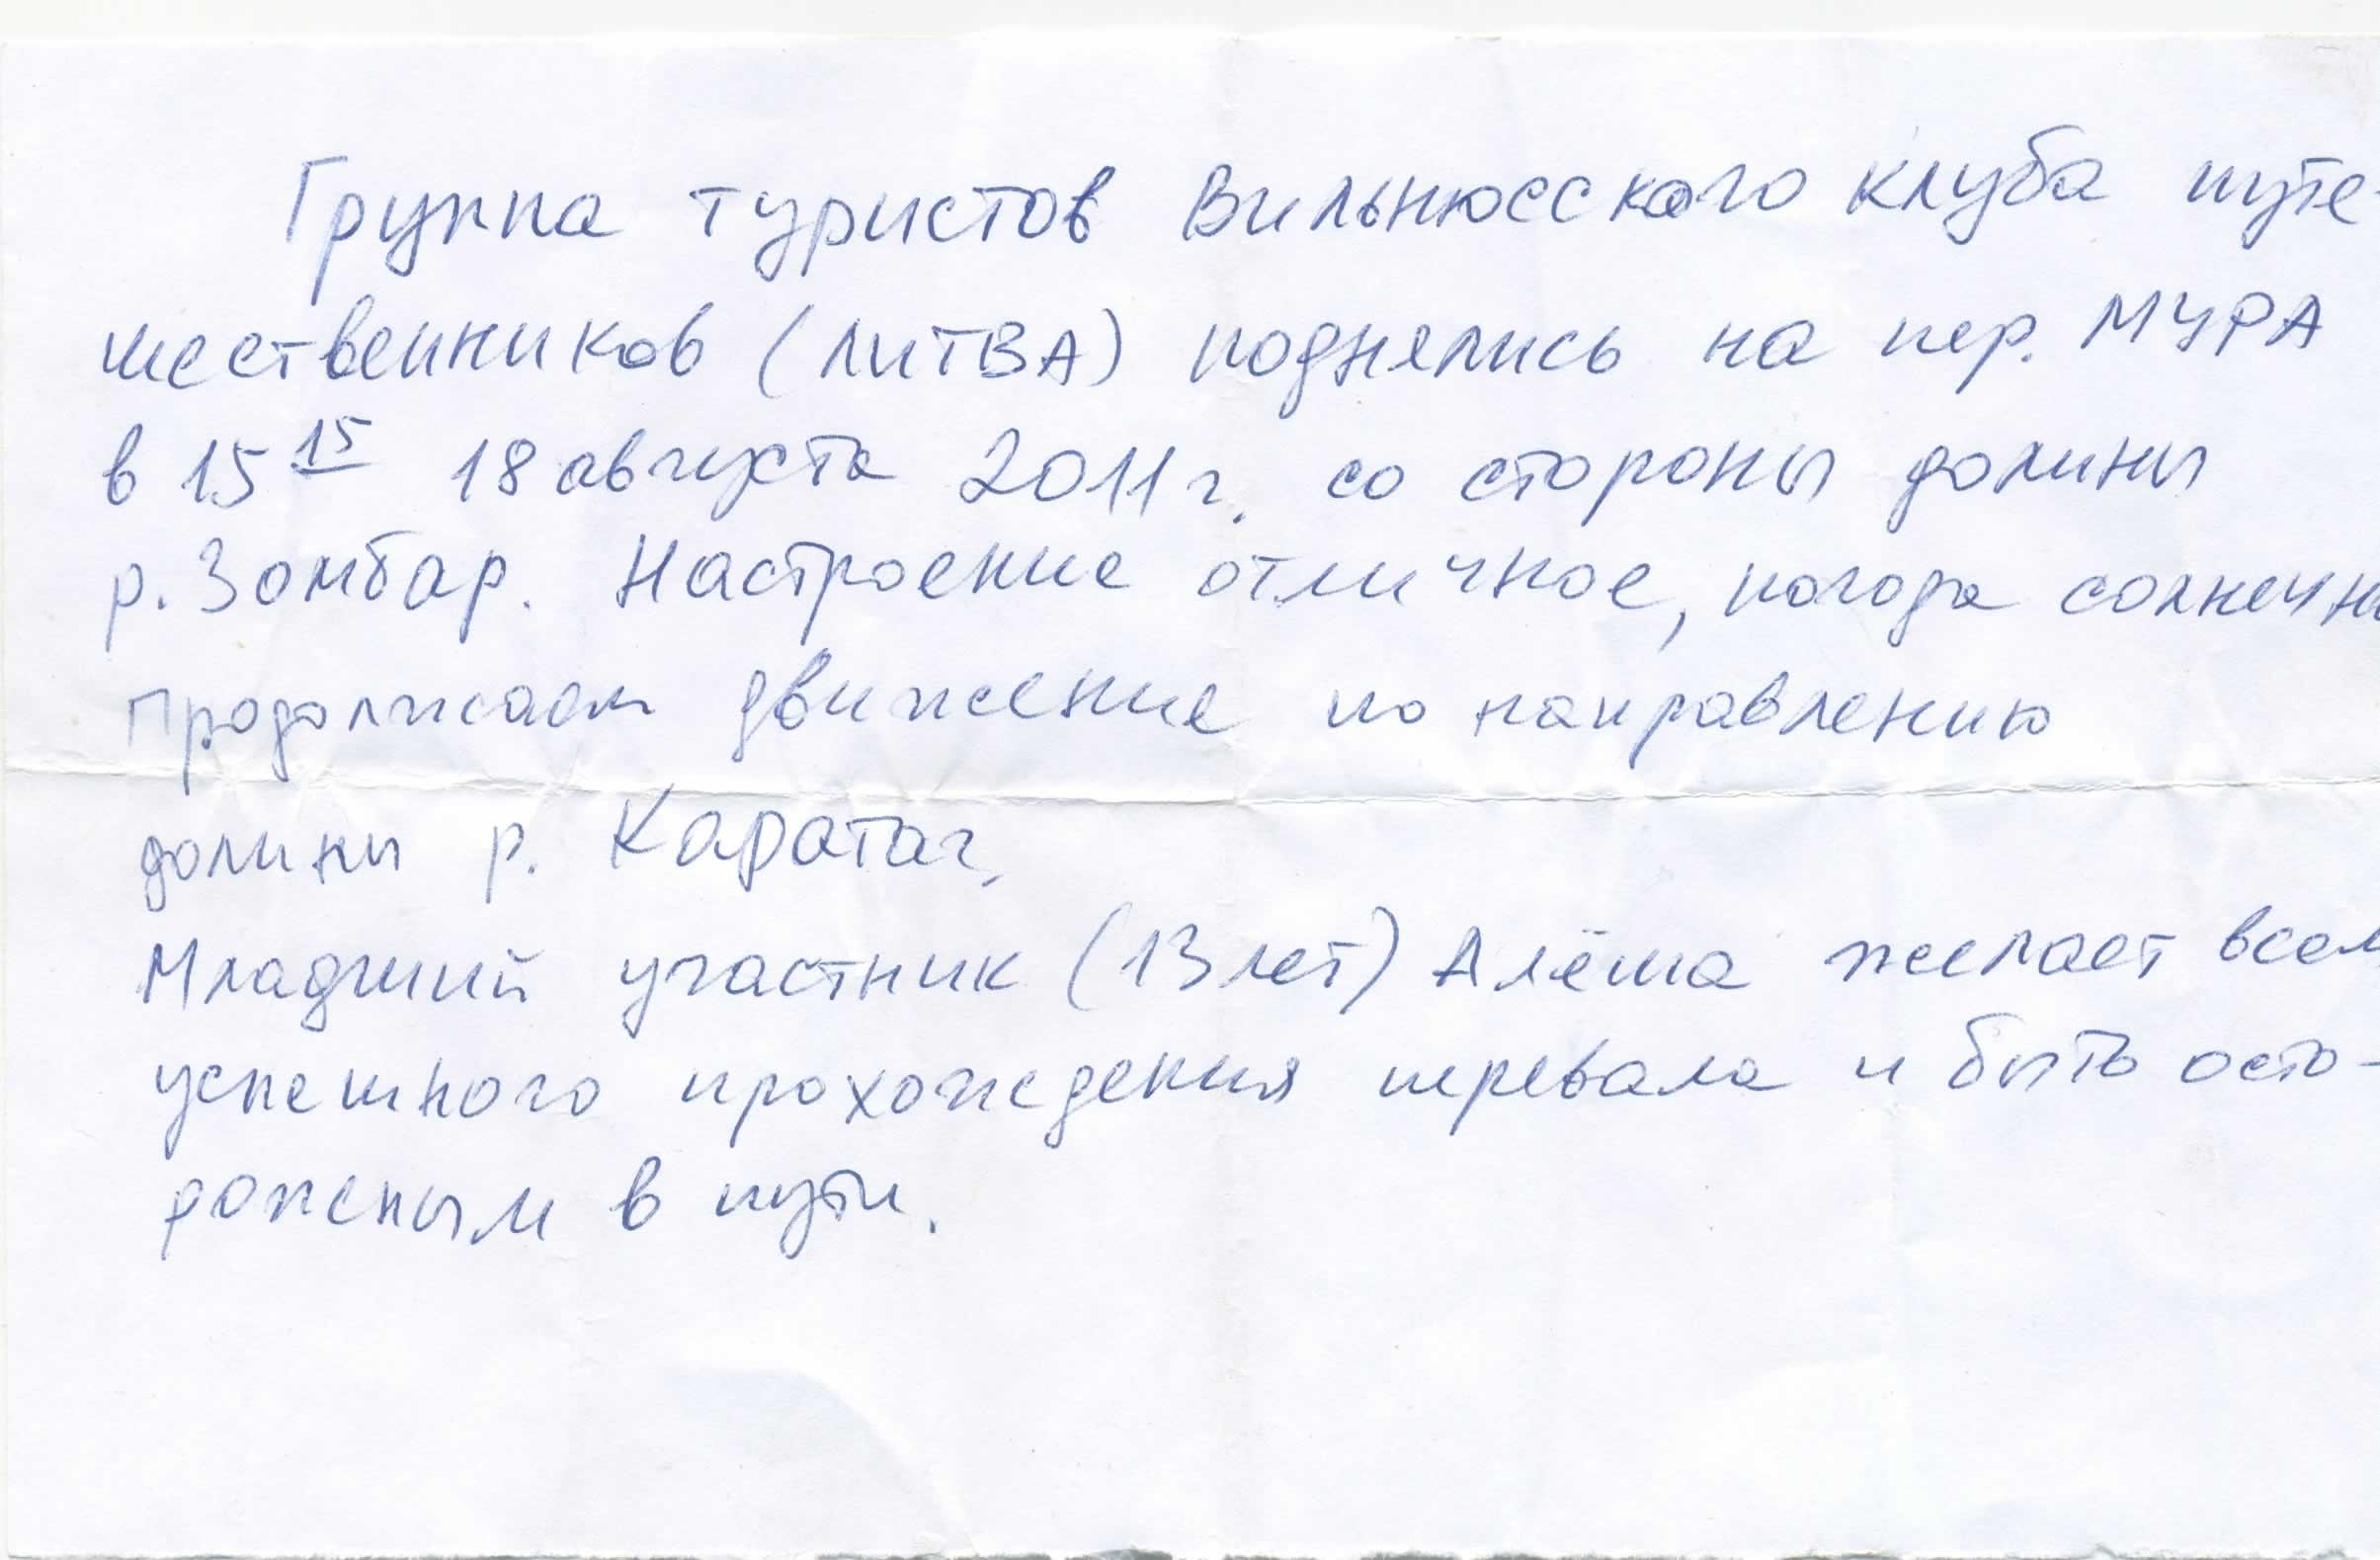 Группа туристов Вильнюсского клуба путе-
шественников (ЛИТВА) поднялись на пер. МУРА
в 15 15 18 августа 2011 г. со стороны долины
р. Зомбар. Настроение отличное, погода солнечн
Продолжаем движение по направлению
долины р. Каратаг.
Младший участник (13 лет) Алёша желает всем
успешного прохождения перевала и быть осто-
рожным в пути.